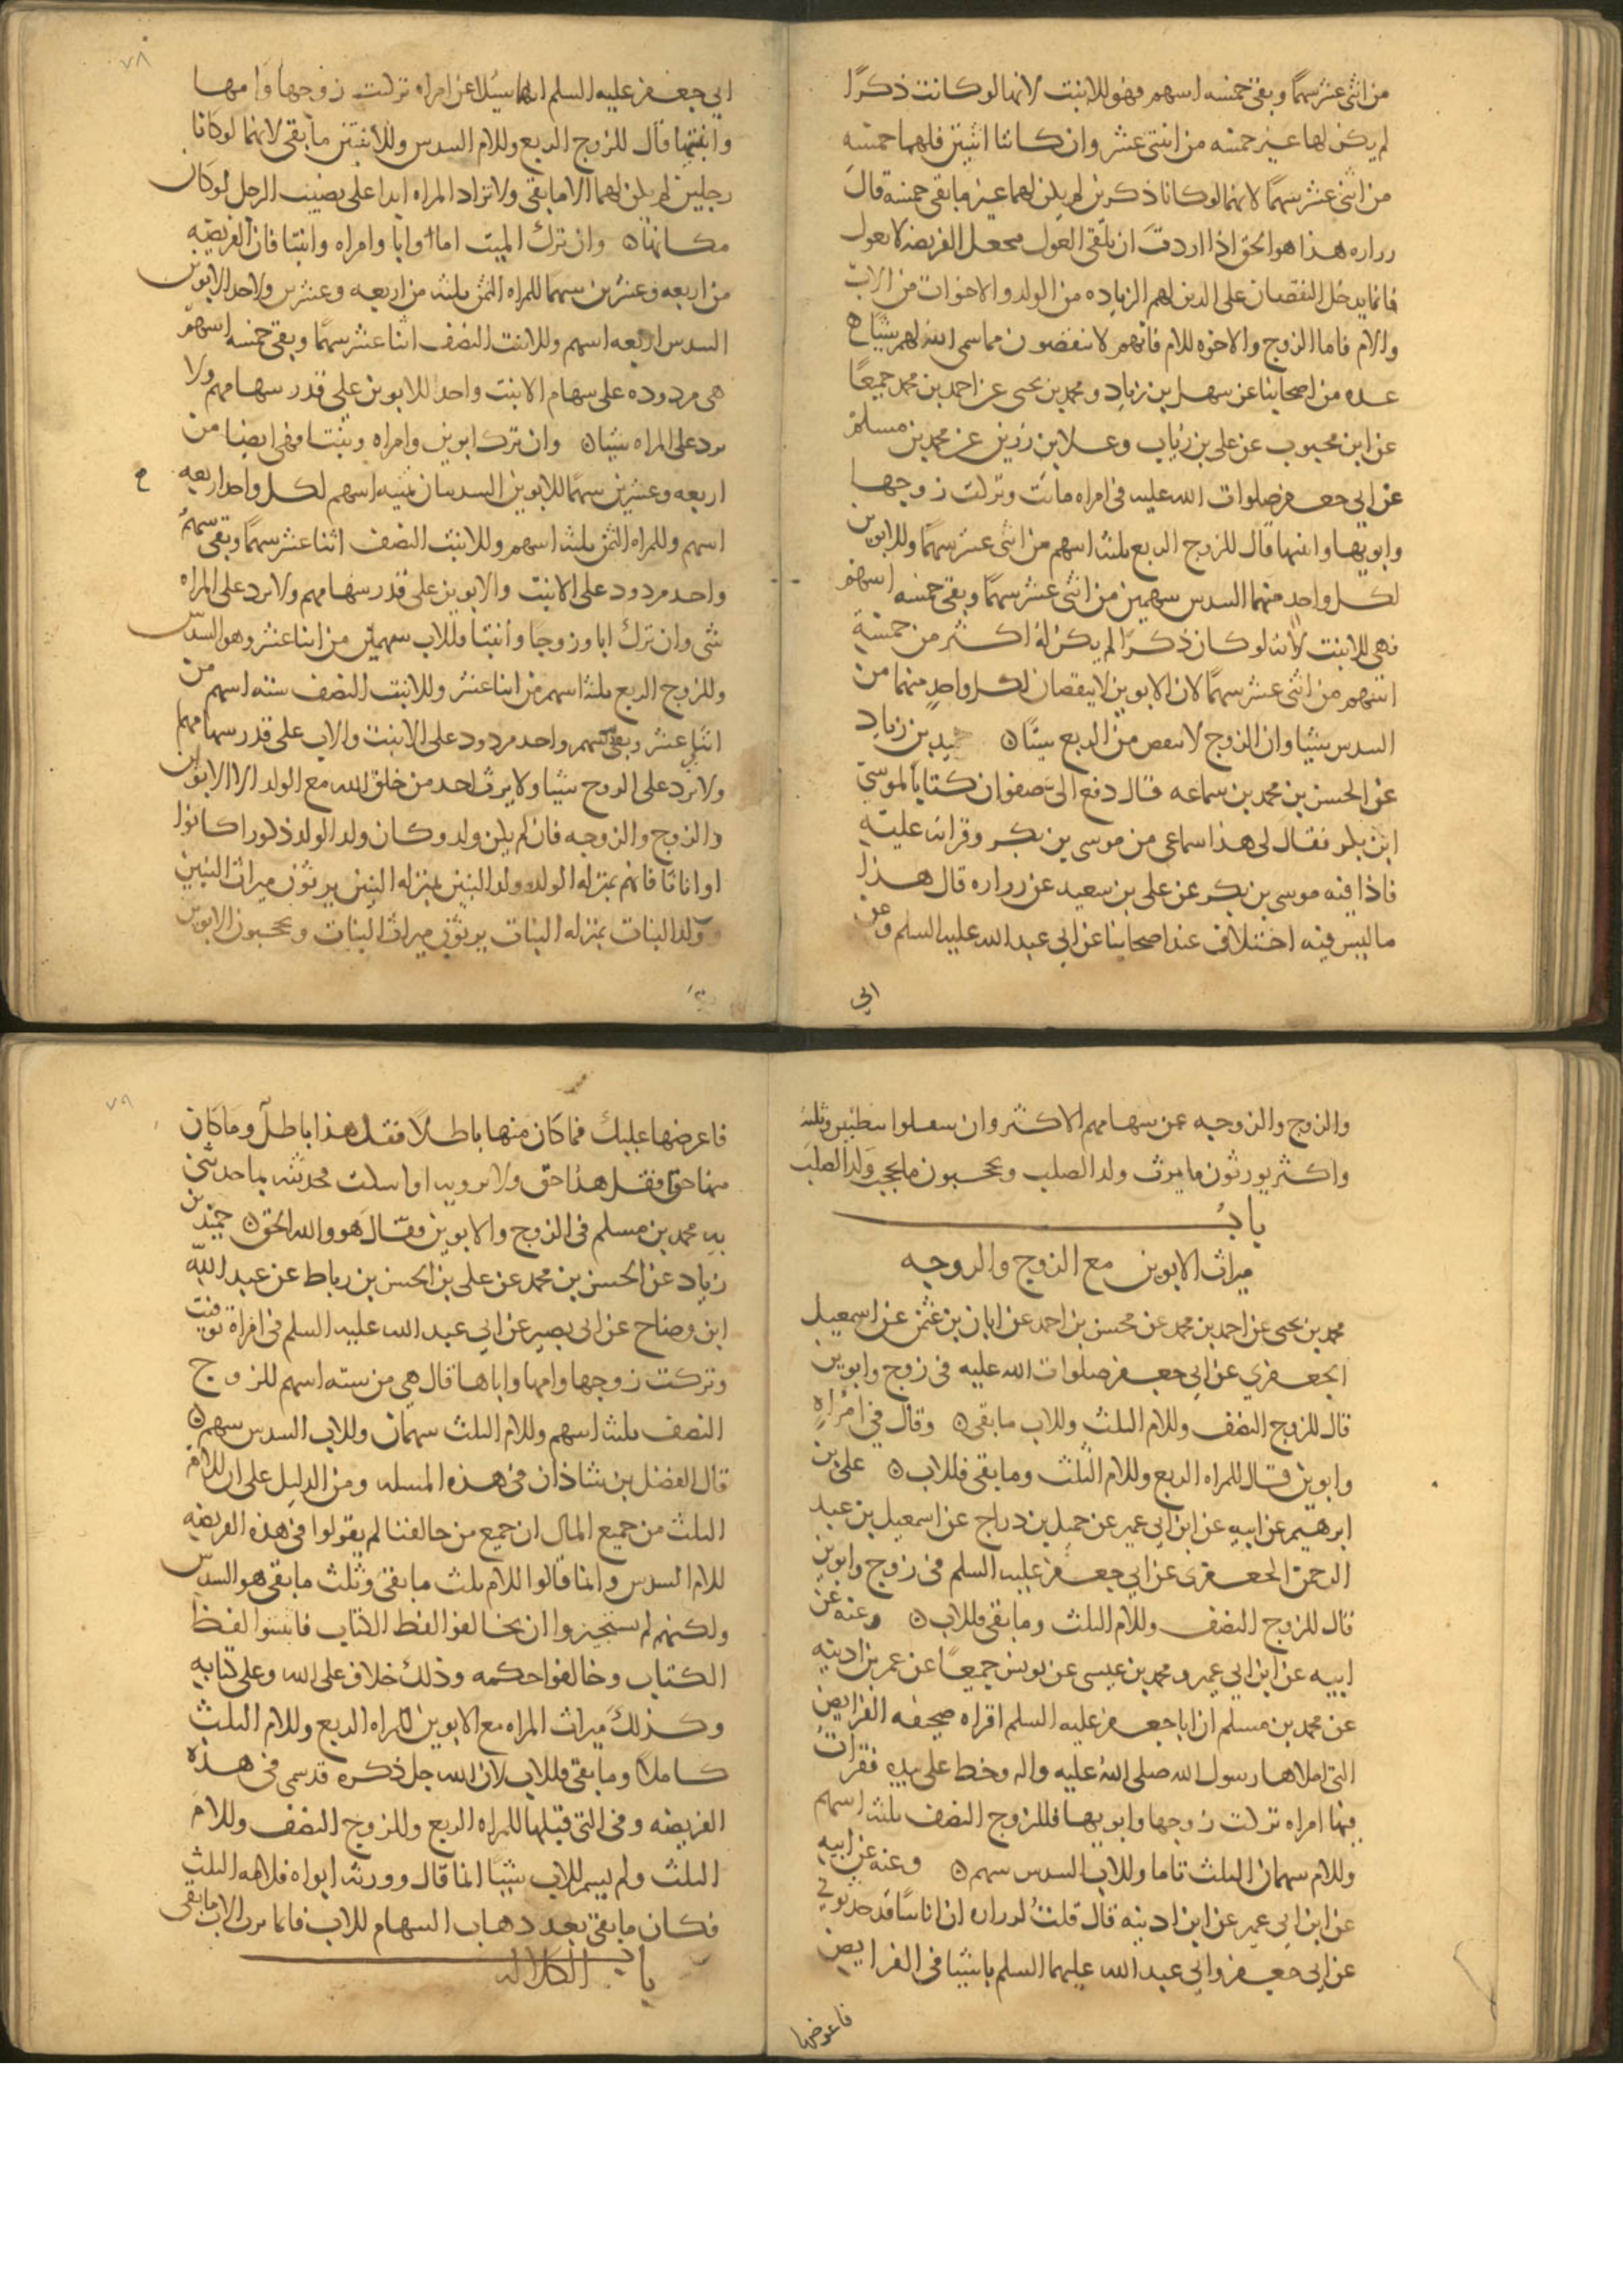 من اثنى عشر سهمًا وبقى خمسه اسهم فهو للابنت لانها لو كانت ذكرًا
لم يكن لها غير خمسه من اثنتى عشر وان كانتا اثنتين فلهما خمسه
من اثنى عشر سهمًا لانهما لو كانا ذكرين لم يكن لهما غير ما بقى خمسه قال
زراره هذا هو الحق اذا اردت ان تلقى العول فتجعل الفريضه لا تعول
فانما يدخل النقصان على الذين لهم الزياده من الولد والاخوات من الاب
والام فاما الزوج والاخوه للام فانهم لا ينقصون مما سمى الله لهم شيئا
عده من اصحابنا عن سهل بن زياد ومحمد بن يحيى عن احمد بن محمد جميعًا
عن ابن محبوب عن على بن رئاب وعلا بن رزين عن محمد بن مسلم
عن ابى جعفر صلوات الله عليه فى امراه ماتت وتركت زوجها
وابويها وابنتها قال للزوج الربع ثلثه اسهم من اثنى عشر سهمًا وللابوين
لكل واحد منهما السدس سهمين من اثنى عشر سهمًا وبقى خمسه اسهم
فهى للابنت لانه لو كان ذكرًا لم يكن له اكثر من خمسة
اسهم من اثنى عشر سهمًا لان الابوين لا ينقصان لكل واحد منهما من
السدس شيئا وان الزوج لا ينقص من الربع شيئا ه حميد بن زياد
عن الحسن بن محمد بن سماعه قال دفع الىّ صفوان كتابًا لموسى
ابن بكر فقال لى هذا سماعى من موسى بن بكر وقراته عليه
فاذا فيه موسى بن بكر عن على بن سعيد عن زراره قال هذا
ما ليس فيه اختلاف عند اصحابنا عن ابى عبد الله عليه السلم وعن
ابى
٧٨
ابى جعفر عليه السلم انهما سئلا عن امراه تركت زوجها وامها
وابنتيها قال للزوج الربع وللام السدس وللابنتين ما بقى لانهما لو كانا
رجلين لم يكن لهما الا ما بقى ولا تزاد المراه ابدا على نصيب الرجل لو كان
مكانها ه وان ترك الميت اما او ابا وامراه وابنتا فان الفريضه
من اربعه وعشرين سهما للمراه الثمن ثلثه من اربعه وعشرين ولاحد الابوين
السدس اربعه اسهم وللابنت النصف اثنا عشر سهمًا وبقى خمسه اسهم
هى مردوده على سهام الابنت واحد الابوين على قدر سهامهم ولا
يرد على المراه شيئا ه وان ترك ابوين وامراه وبنتا فهى ايضا من
اربعه وعشرين سهمًا للابوين السدسان ثمنيه اسهم لكل واحد اربعه
اسهم وللمراه الثمن ثلثه اسهم وللابنت النصف اثنا عشر سهمًا وبقى سهم
واحد مردود على الابنت والابوين على قدر سهامهم ولا يرد على المراه
شى وان ترك ابا وزوجا وابنتا فللاب سهمين من اثنا عشر وهو السدس
وللزوج الربع ثلثه اسهم من اثنا عشر وللابنت النصف سته اسهم من
اثنا عشر وبقى سهم واحد مردود على الابنت والاب على قدر سهامهم
ولا يرد على الزوج شيئا ولا يرث احد من خلق الله مع الولد الا الابوين
والزوج والزوجه فان لم يكن ولد وكان ولد الولد ذكورا كانوا
او اناثا فانهم بمنزله الولد وولد البنين بمنزله البنين يرثون ميراث البنين
وولد البنات بمنزله البنات يرثون ميراث البنات ويحجبون الابوين
والزوج والزوجه عن سهامهم الاكثر وان سفلوا ببطنين وثلثه
واكثر يورثون ما يورث ولد الصلب ويحجبون ما يحجب ولد الصلب
باب
ميراث الابوين مع الزوج والزوجه
محمد بن يحيى عن احمد بن محمد عن محسن بن احمد عن ابان بن عثمن عن اسمعيل
الجعفرى عن ابى جعفر صلوات الله عليه فى زوج وابوين
قال للزوج النصف وللام الثلث وللاب ما بقى ه وقال فى امراه
وابوين قال للمراه الربع وللام الثلث وما بقى فللاب ه على بن
ابرهيم عن ابيه عن ابن ابى عمير عن جميل بن دراج عن اسمعيل بن عبد
الرحمن الجعفرى عن ابى جعفر عليه السلم فى زوج وابوين
قال للزوج النصف وللام الثلث وما بقى فللاب ه وعنه عن
ابيه عن ابن ابى عمير ومحمد بن عيسى عن يونس جميعًا عن عمر بن اذينه
عن محمد بن مسلم ان ابا جعفر عليه السلم اقراه صحيفه الفرايض
التى املاها رسول الله صلى الله عليه واله وخط على بيده فقرات
فيها امراه تركت زوجها وابويها فللزوج النصف ثلثه اسهم
وللام سهمان الثلث تاما وللاب السدس سهم ه وعنه عن ابيه
عن ابن ابى عمير عن ابن اذينه قال قلت لزراره ان اناسًا قد حدثونى
عن ابى جعفر وابى عبد الله عليهما السلم باشيا فى الفرايض
فاعرضها
٧٩
فاعرضها عليك فما كان منها باطلًا فقل هذا باطل وما كان
منها حقا فقل هذا حق ولا تروه او اسكت فحدثته بما حدثنى
به محمد بن مسلم فى الزوج والابوين فقال هو والله الحق ه حميد بن
زياد عن الحسن بن محمد عن على بن الحسن بن رباط عن عبد الله
ابن وضاح عن ابى بصير عن ابى عبد الله عليه السلم فى امراة توفيت
وتركت زوجها وامها واباها قال هى من سته اسهم للزوج
النصف ثلثه اسهم وللام الثلث سهمان وللاب السدس سهم ه
قال الفضل بن شاذان فى هذه المسله ومن الدليل على ان للام
الثلث من جميع المال ان جميع من خالفنا لم يقولوا فى هذه الفريضه
للام السدس وانما قالوا للام ثلث ما بقى وثلث ما بقى هو السدس
ولكنهم لم يستجيزوا ان يخالفوا لفظ الكتاب فاثبتوا لفظ
الكتاب وخالفوا حكمه وذلك خلاف على الله وعلى كتابه
وكذلك ميراث المراه مع الابوين للمراه الربع وللام الثلث
كاملا وما بقى فللاب لان الله جل ذكره قد سمى فى هذه
الفريضه وفى التى قبلها للمراه الربع وللزوج النصف وللام
الثلث ولم يسم للاب شيئًا انما قال وورثه ابواه فلامه الثلث
فكان ما بقى بعد ذهاب السهام للاب فانما يرث الاب ما بقى
باب الكلاله